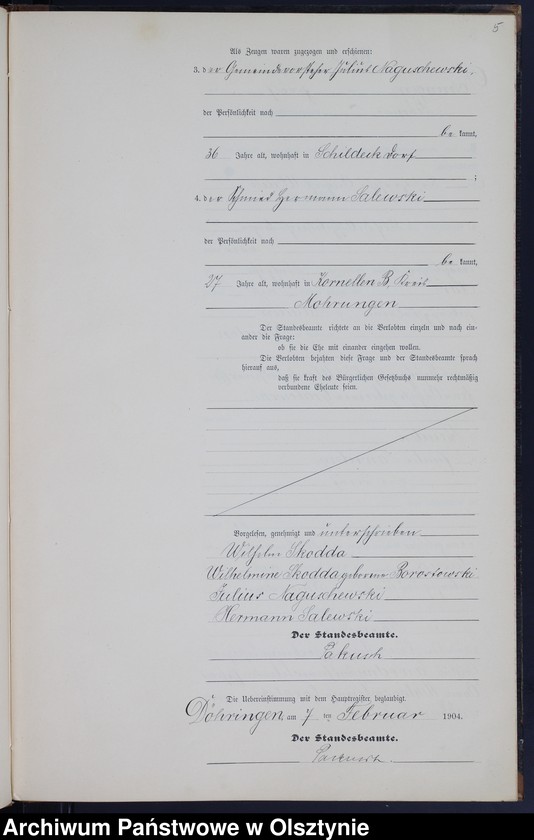 5
Als Zeugen waren zugezogen und erschienen:
3. der Gemeindevorsteher Julius Naguschewski,
der Persönlichkeit nach
be kannt,
36 Jahre alt, wohnhaft in Schildeck Dorf
;
4. der Schmied Hermann Salewski
der Persönlichkeit nach
be kannt,
27 Jahre alt, wohnhaft in Kornellen B, Kreis
Mohrungen
Der Standesbeamte richtete an die Verlobten einzeln und nach ein-
ander die Frage:
ob sie die Ehe mit einander eingehen wollen.
Die Verlobten bejahten diese Frage und der Standesbeamte sprach
hierauf aus,
daß sie kraft des Bürgerlichen Gesetzbuchs nunmehr rechtmäßig
verbundene Eheleute seien.
Vorgelesen, genehmigt und unterschrieben
Wilhelm Skodda
Wilhelmine Skodda geborene Borostowski
Julius Naguschewski
Hermann Salewski
Der Standesbeamte.
Die Uebereinstimmung mit dem Hauptregister beglaubigt.
Döhringen, am 7 ten Februar 1904.
Der Standesbeamte.
Archiwum Państwowe w Olsztynie